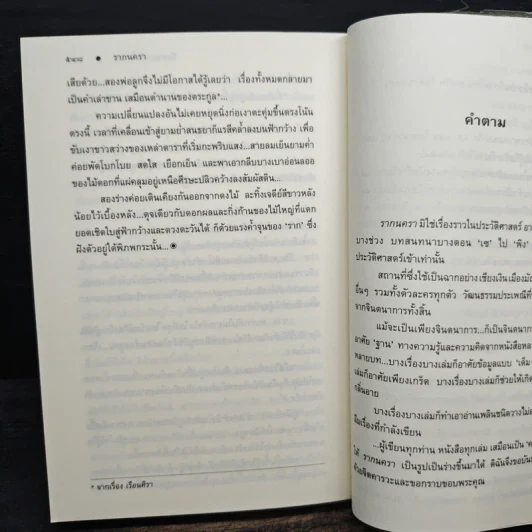 ๕๙๘ ● รากนครา
เสียด้วย...สองพ่อลูกจึงไม่มีโอกาสได้รู้เลยว่า เรื่องทั้งหมดกลายมา
เป็นคำเล่าขาน เสมือนตำนานของตระกูล*...
ความเปลี่ยนแปลงอันไม่เคยหยุดนิ่งก่อเงาตะคุ่มขึ้นตรงโน้น
ตรงนี้ เวลาที่เคลื่อนเข้าสู่ยามย่ำสนธยาก็แรสีคล้ำลงบนฟ้ากว้าง เพื่อ
ขับเงาขาวสว่างของเหล่าดาราที่เริ่มกะพริบแสง...สายลมเย็นยามค่ำ
ค่อยพัดโบกโบย สดใส เยือกเย็น และพาเอากลีบบางเบาอ่อนลออ
ของไม้ดอกที่แผ่คลุมอยู่เหนือศีรษะปลิวคว้างลงสัมผัสดิน...
สองร่างค่อยเดินเคียงกันออกจากดงไม้ ละทิ้งเจดีย์สีขาวหลัง
น้อยไว้เบื้องหลัง...ดุจเดียวกับดอกผลและกิ่งก้านของไม้ใหญ่ที่แตก
ยอดเชิดไปสู่ฟ้ากว้างและดวงตะวันได้ ก็ด้วยแรงค้ำจุนของ 'ราก' ซึ่ง
ฝังตัวอยู่ใต้พิภพกระนั้น...◉
* จากเรื่อง เรือนศิรา
คำตาม
รากนครา มิใช่เรื่องราวในประวัติศาสตร์
บางช่วง บทสนทนาบางตอน 'เซ' ไป 'พิง'
ประวัติศาสตร์เข้าเท่านั้น
สถานที่ซึ่งใช้เป็นฉากอย่าง เชียงเงิน
อื่นๆ รวมทั้งตัวละครทุกตัว วัฒนธรรมประเพณี
จากจินตนาการทั้งสิ้น
แม้จะเป็นเพียงจินตนาการ...ก็เป็น
อาศัย 'ฐาน' ทางความรู้และความคิดจากหนังสือ
หลายบท...บางเรื่องบางเล่มก็อาศัยข้อมูลแบบ
เล่มก็อาศัยเพียงเกร็ด บางเรื่องบางเล่มก็ช่วยให้
กลิ่นอาย
บางเรื่องบางเล่มก็ทำเอาอ่านเพลินชนิดวางไม่
ลืมเรื่องที่กำลังเขียน
...ผู้เขียนทุกท่าน หนังสือทุกเล่ม เสมือนเป็น
ให้ รากนครา เป็นรูปเป็นร่างขึ้นมาได้ ดิฉันจึง
ด้วยจิตคารวะและขอกราบขอบพระคุณ